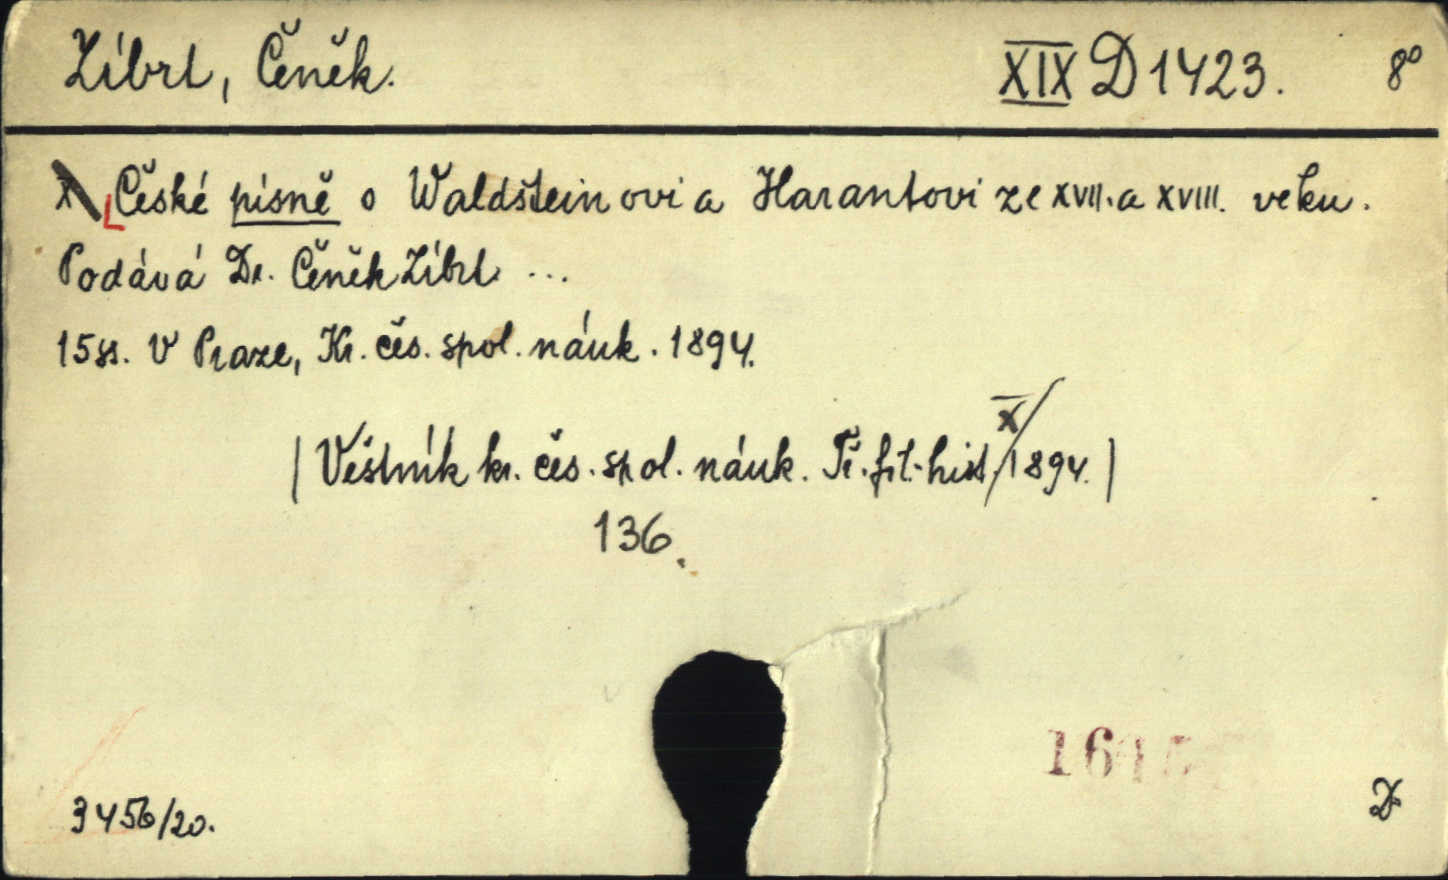 Zíbrt, Čeněk. XIX D 1423. 8°
X České písně o Waldšteinovi a Harantovi ze XVII. a XVIII. veku.
Podává Dr. Čeněk Zíbrt ...
15 ss. V Praze, Kr. čes. spol. náuk. 1894.
X
| Věstník kr. čes. spol. náuk. Tř. fil.-hist. / 1894. |
136.
3456/20.